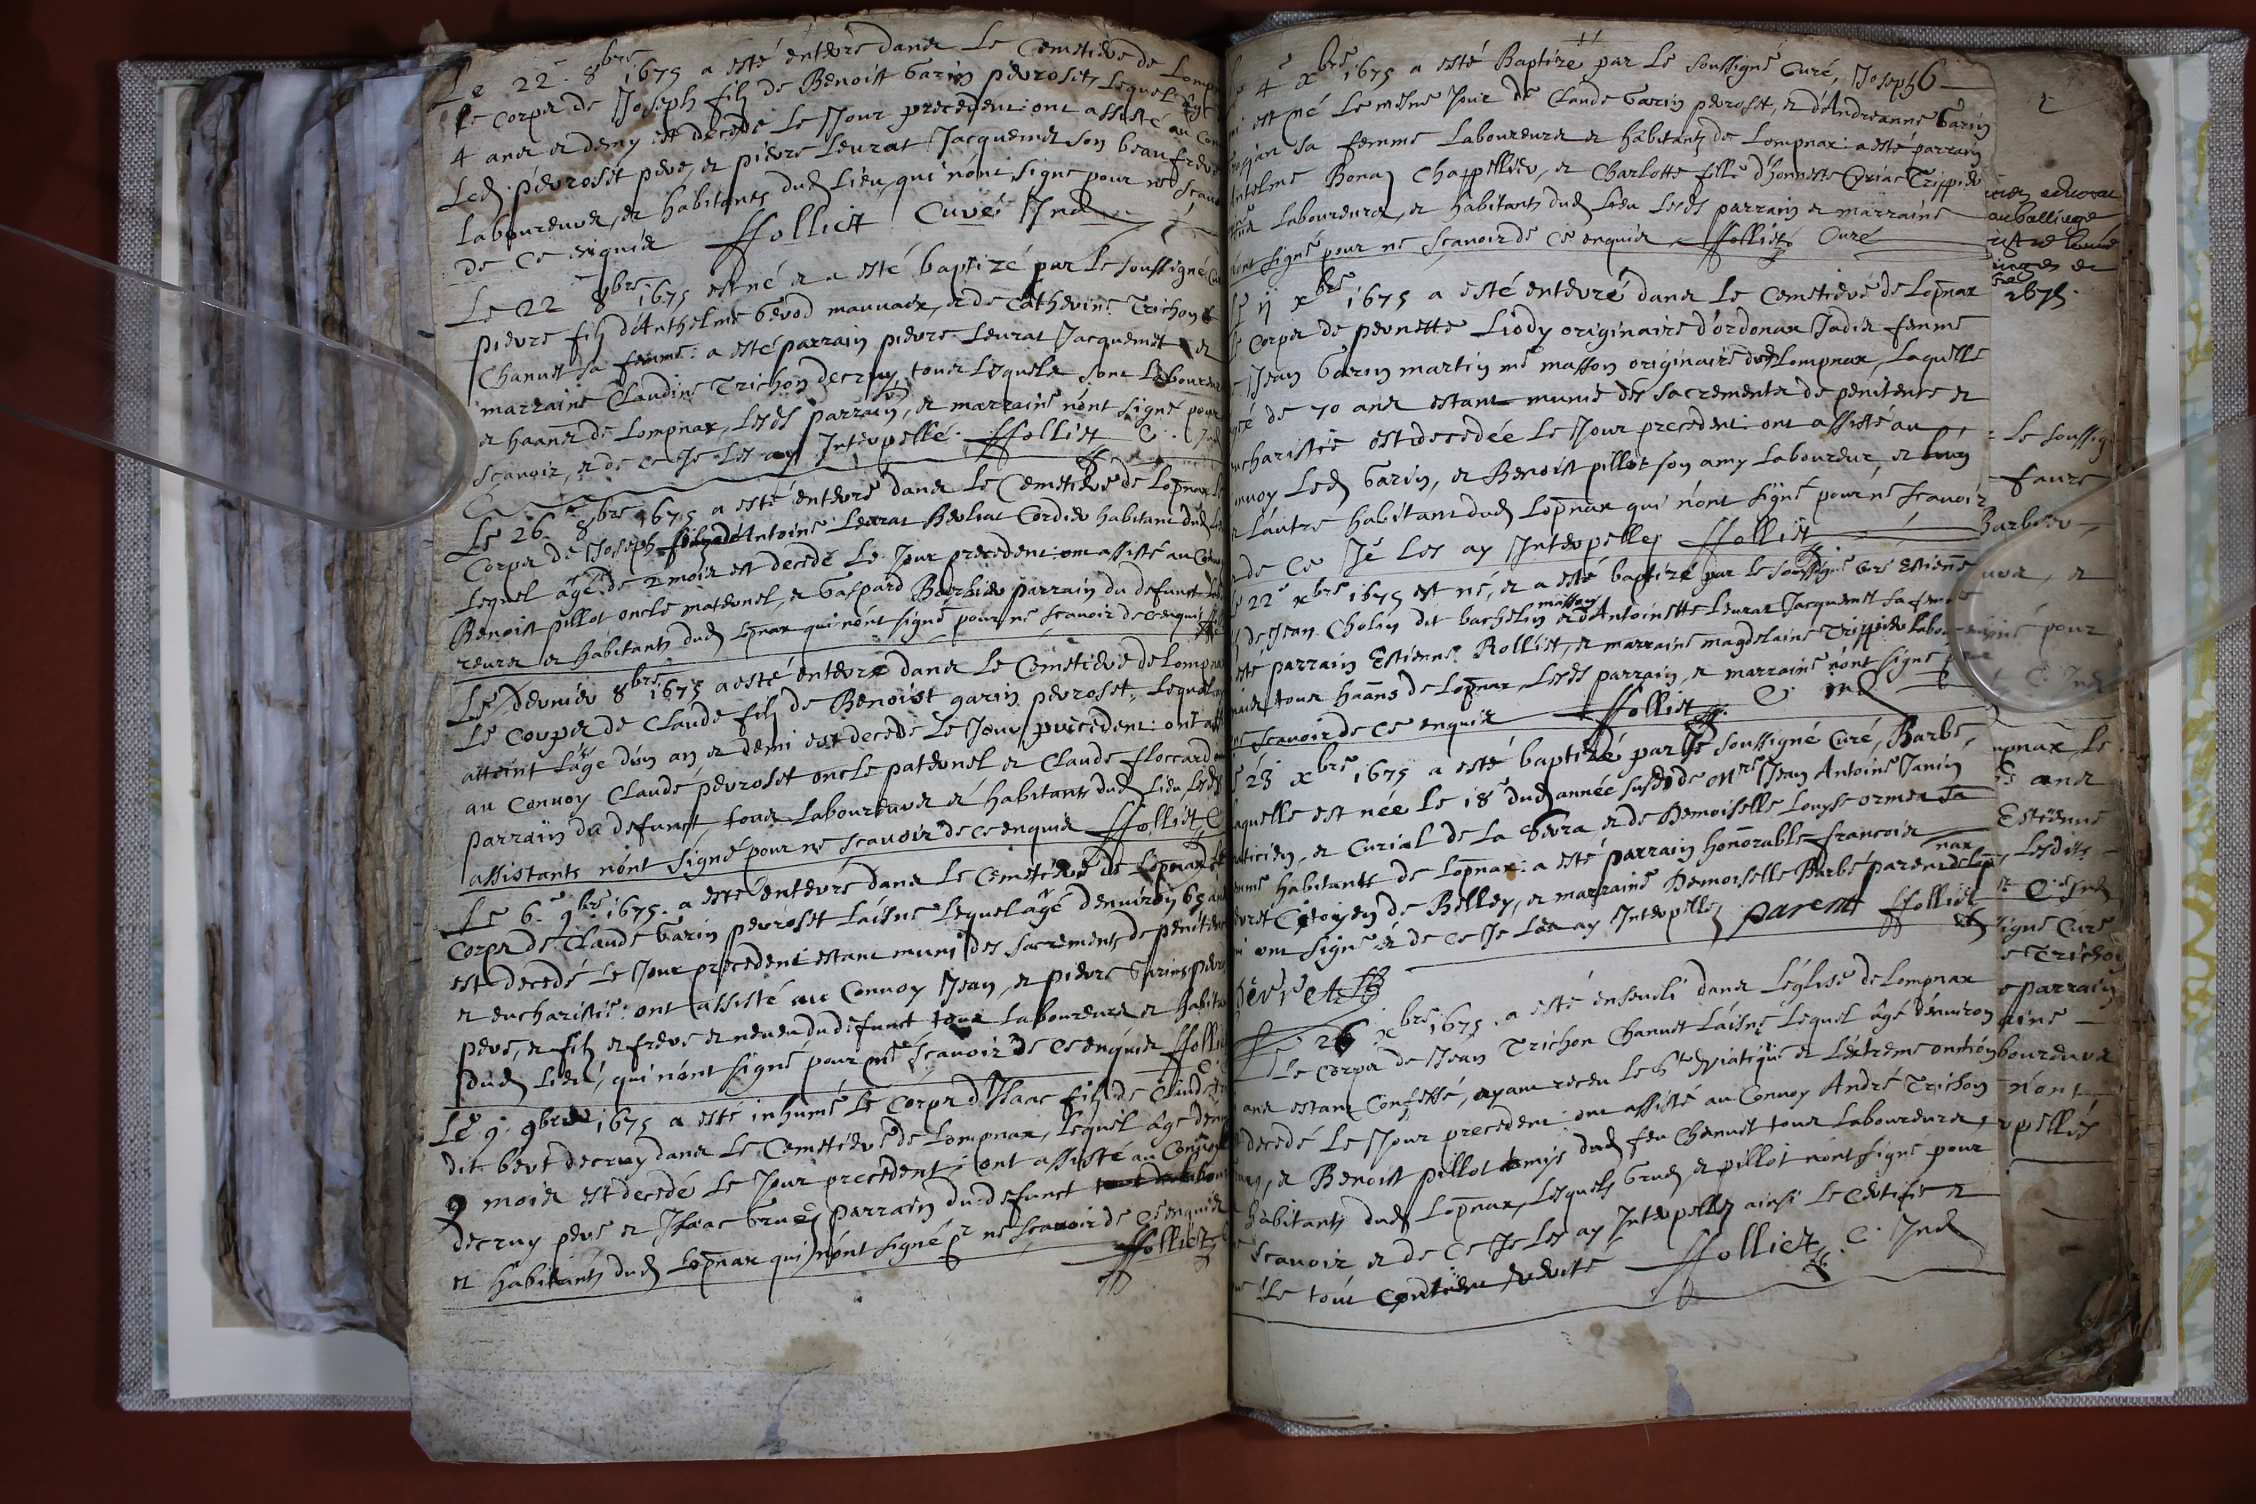 Le 22e 8bre 1675 a esté enterré dans Le Cemetiere de Lomp
Le corps de Joseph filz de Benoist Garin perroset, Lequel
4 ans et demy est decedé Le Jour precedent: ont assisté au Con
Led. perroset pere, et pierre Leurat Jacquemet son beau frere
Laboureurs, et habitants dud Lieu, qui n'ont signé pour ne scavoi
de ce enquis ffolliet Curé Ind
Le 22 8bre 1675 est né et a esté baptizé par le soussigné Cu
pierre filz d'Anthelme Gerod mauvais, et de Catherine Trichon
Chanut sa femme: a esté parrain pierre Leurat Jacquemet et
marraine Claudine Trichon decruy, tous Lesquels sont Laboureu
et haans de Lompnax, Lesds parrain, et marraine n'ont signé pour
scavoir, et de ce Je Les ay Interpellé. ffolliet C. Ind
Le 26. 8bre 1675 a esté enterré dans Le Cemetiere de Lopnax
Corps de Joseph filz d'Antoine Leurat Cordier habitant dud
Lequel âgé de 2 mois est decedé Le Jour precedent: ont assisté au Con
Benoist pillot oncle maternel, et Gaspard Barbier parrain du defunct
reurs et habitants dud Lopnax qui n'ont signé pour ne scavoir de ce enquis
Le dernier 8bre 1675 a esté enterré dans Le Cemetiere de Lompna
Le Corps de Claude filz de Benoist garin perroset, Lequel
atteint L'âge d'un an et demi est decedé Le Jour precedent: ont ass
au Convoy Claude perroset oncle paternel et Claude floccard
parrain du defunct, tous Laboureurs et habitants dud Lieu Lesd
assistants n'ont signé pour ne scavoir de ce enquis ffolliet C
Le 6.e 9bre 1675. a esté enterré dans Le Cemetiere de Lopnax
Corps de Claude Garin perroset L'aisné Lequel âgé d'environ 65 an
est decedé Le Jour precedent estant muni des sacrements de penitence
et eucharistie: ont assisté au Convoy Jean, et pierre Garins perro
pere, et filz et frere et neveu du defunct tous Laboureurs et habita
dud Lieu, qui n'ont signé pour ne scavoir de ce enquis ffollie
Le 9. 9bre 1675 a esté inhumé Le Corps d'Isaac filz de Claude
dit bert decruy dans Le Cemetiere de Lompnax, Lequel âgé d'env
9 mois est decedé Le Jour precedent: ont assisté au Convoy
decruy pere et Isaac parrain du defunct
et habitants dud Lopnax qui n'ont signé pr ne scavoir de ce enquis
ffolliet
4e xbre 1675 a esté Baptizé par Le soussigné Curé, Joseph 6
est né Le mesme Jour de Claude Garin perroset, et d'Andreanne Garin
sa femme Laboureurs et habitants de Lompnax: a esté parrain
Anthelme Bona Chappellier, et Charlotte fille d'honneste Cyriac Trippier
Laboureurs, et habitants dud Lieu Lesds parrain et marraine
n'ont signé pour ne scavoir de ce enquis ffolliet Curé
Le ij xbre 1675 a esté enterré dans Le Cemetiere de Lopnax
Le Corps de pernette Liody originaire d'ordonax Jadis femme
Jean Garin martin me masson originaire dud Lompnax, Laquelle
âgée de 70 ans estant munie des sacrements de penitence et
eucharistie est decedée Le Jour precedent: ont assisté au
convoy Led Garin, et Benoist pillot son amy Laboureur, et L'un
et L'autre habitant dud Lopnax qui n'ont signé pour ne scavoir
de ce Je Les ay Interpellez ffolliet
Le 22e xbre 1675 est né, et a esté baptizé par Le soussigné Curé Estienne
de Jean Cholin dit bachelin masson et d'Antoinette Leurat Jacquemet sa femme
esté parrain Estienne Rolliet, et marraine magdelaine Trippier Labou
tous haans de Lopnax, Lesds parrain, et marraine n'ont signé pour
ne scavoir de ce enquis ffolliet C. Ind
Le 23 xbre 1675 a esté baptizé par Le soussigné Curé, Barbe,
Laquelle est née Le 18e dud année susd de Mre Jean Antoine Janin
praticien, et Curial de La Verra et de Demoiselle Louyse ormes sa
femme habitants de Lopnax: a esté parrain honnorable francois
Citoyen de Belley, et marraine Demoiselle Barbe parent de Lopnax
qui ont signé et de ce Je Les ay Interpellez parent ffolliet
26 xbre 1675. a esté enseveli dans L'église de Lompnax
Le Corps de Jean Trichon Chanut L'aisné Lequel âgé d'environ
ans estant Confessé, ayant receu Le St Viatique et L'extreme onction
decedé Le Jour precedent: ont assisté au Convoy André Trichon
et Benoist pillot amys dud feu Chanut tous Laboureurs
habitants dud Lopnax, Lesquels et pillot n'ont signé pour
scavoir et de ce Je Les ay Interpellez ainsi Le Certifie et
Le tout Contenir verité ffolliet C. Ind
2
1675.
Le soussig
faure
Barbier
pour
C. Ind
Lompnax Le
ans
Estienne
Lesdits
C. Ind
signé Curé
Trichon
parrain
aine
boureurs
n'ont
rpellés